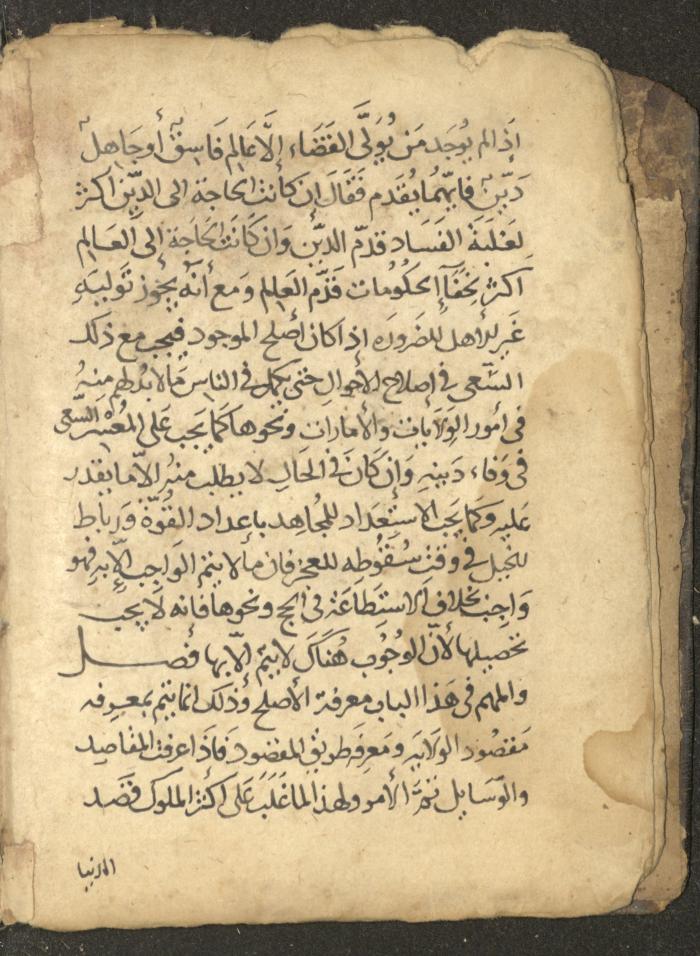 إذا لم يوجد من يُوَلَّى القَضَاء إلّا عَالم فَاسِق أو جَاهل
دَيّن فايّهمُا يُقَدم فقَالَ إن كانت الحاجة الى الدِّيْن اكثر
لغَلبَة الفَسَاد قدّم الدّيّن وَان كَانَت الحَاجَة إلى العَالِم
اكثر لخفَآء الحكُومَات قَدَّم العَالم وَمَع أنّه يجُوز تَوليَة
غَير الأهل للضَرورَه إذا كان أصلح الموجود فيجب مع ذلك
السَّعى في إصلاح الأحوالِ حتى يكمل في الناس مَا لا بُدّ لهم مِنهُ
في أمور الوِلَايَات والأمارات ونحوها كَمَا يَجب عَلى المُعْسِر السّعى
في وَفاء دَينهِ وَإن كانَ في الحَالِ لا يطلب منهُ إلّا ما يقدر
عَليه وكمَا يَجب الاستِعدَاد للجهاد بإعداد القُوّة وَرباط
للخيل في وقت سُقُوطه للعجز فان مَا لا يتم الوَاجب إلّا بهِ فهو
وَاجِب بخلاف الاستِطَاعَة في الحج ونحوها فَانه لَا يجب
تحصِيلها لأنّ الوجُوب هُنَاكَ لا يتمّ الّا بها فصـل
والمهم في هَذا الباب معرفة الأصلح وَذلك انما يتم بمعرفه
مَقصُود الولَايَه ومَعرِفة طريق المقصُود فَاذا عرفت المقاصِد
والوَسَايل تمَّ الأمر ولهذا لما غَلَبَ عَلى اكثر الملوك قصَد
الدنيا